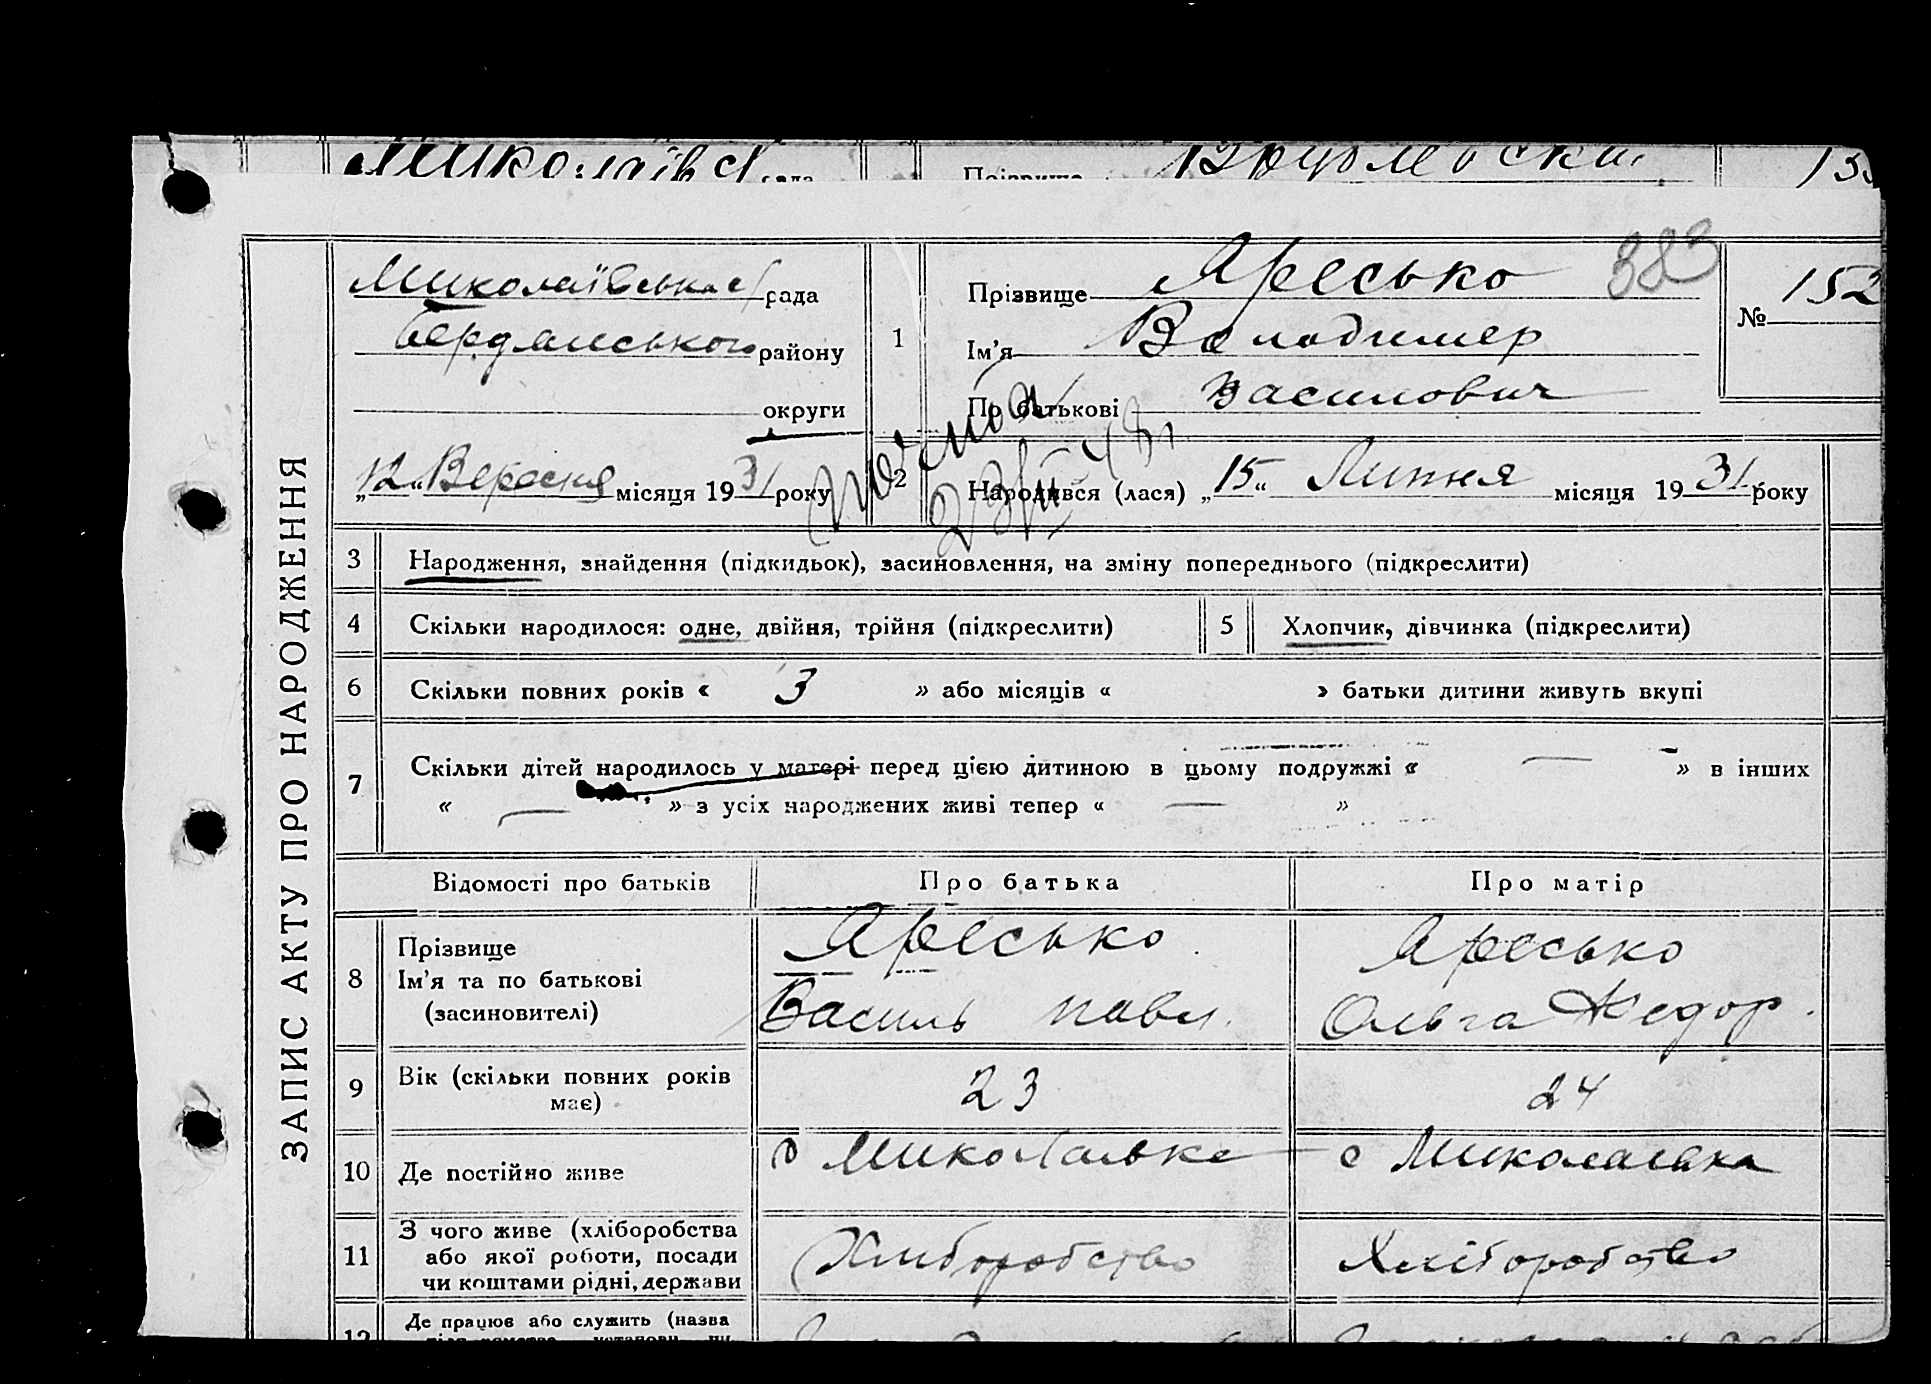 Миколаївськ рада Прізвище 133
ЗАПИС АКТУ ПРО НАРОДЖЕННЯ
383
Миколаївська с/рада
Бердянського району
округи
„12“ Вересня місяця 1931 року
1
Прізвище Яресько
Ім'я Володимер
По батькові Василович
№ 152
2
Народився (лася) „15“ Липня місяця 1931 року
3 Народження, знайдення (підкидьок), засиновлення, на зміну попереднього (підкреслити)
4 Скільки народилося: одне, двійня, трійня (підкреслити) 5 Хлопчик, дівчинка (підкреслити)
6 Скільки повних років « 3 » або місяців « » батьки дитини живуть вкупі
7 Скільки дітей народилось у матері перед цією дитиною в цьому подружжі « — » в інших
« — » з усіх народжених живі тепер « — »
Відомості про батьків Про батька Про матір
8 Прізвище
Ім'я та по батькові
(засиновителі)
Яресько
Василь Павл.
Яресько
Ольга Федор.
9 Вік (скільки повних років
має)
23 24
10 Де постійно живе с Миколаївке с Миколаївка
11 З чого живе (хліборобства
або якої роботи, посади
чи коштами рідні, держави
Хліборобство Хліборобство
12 Де працює або служить (назва